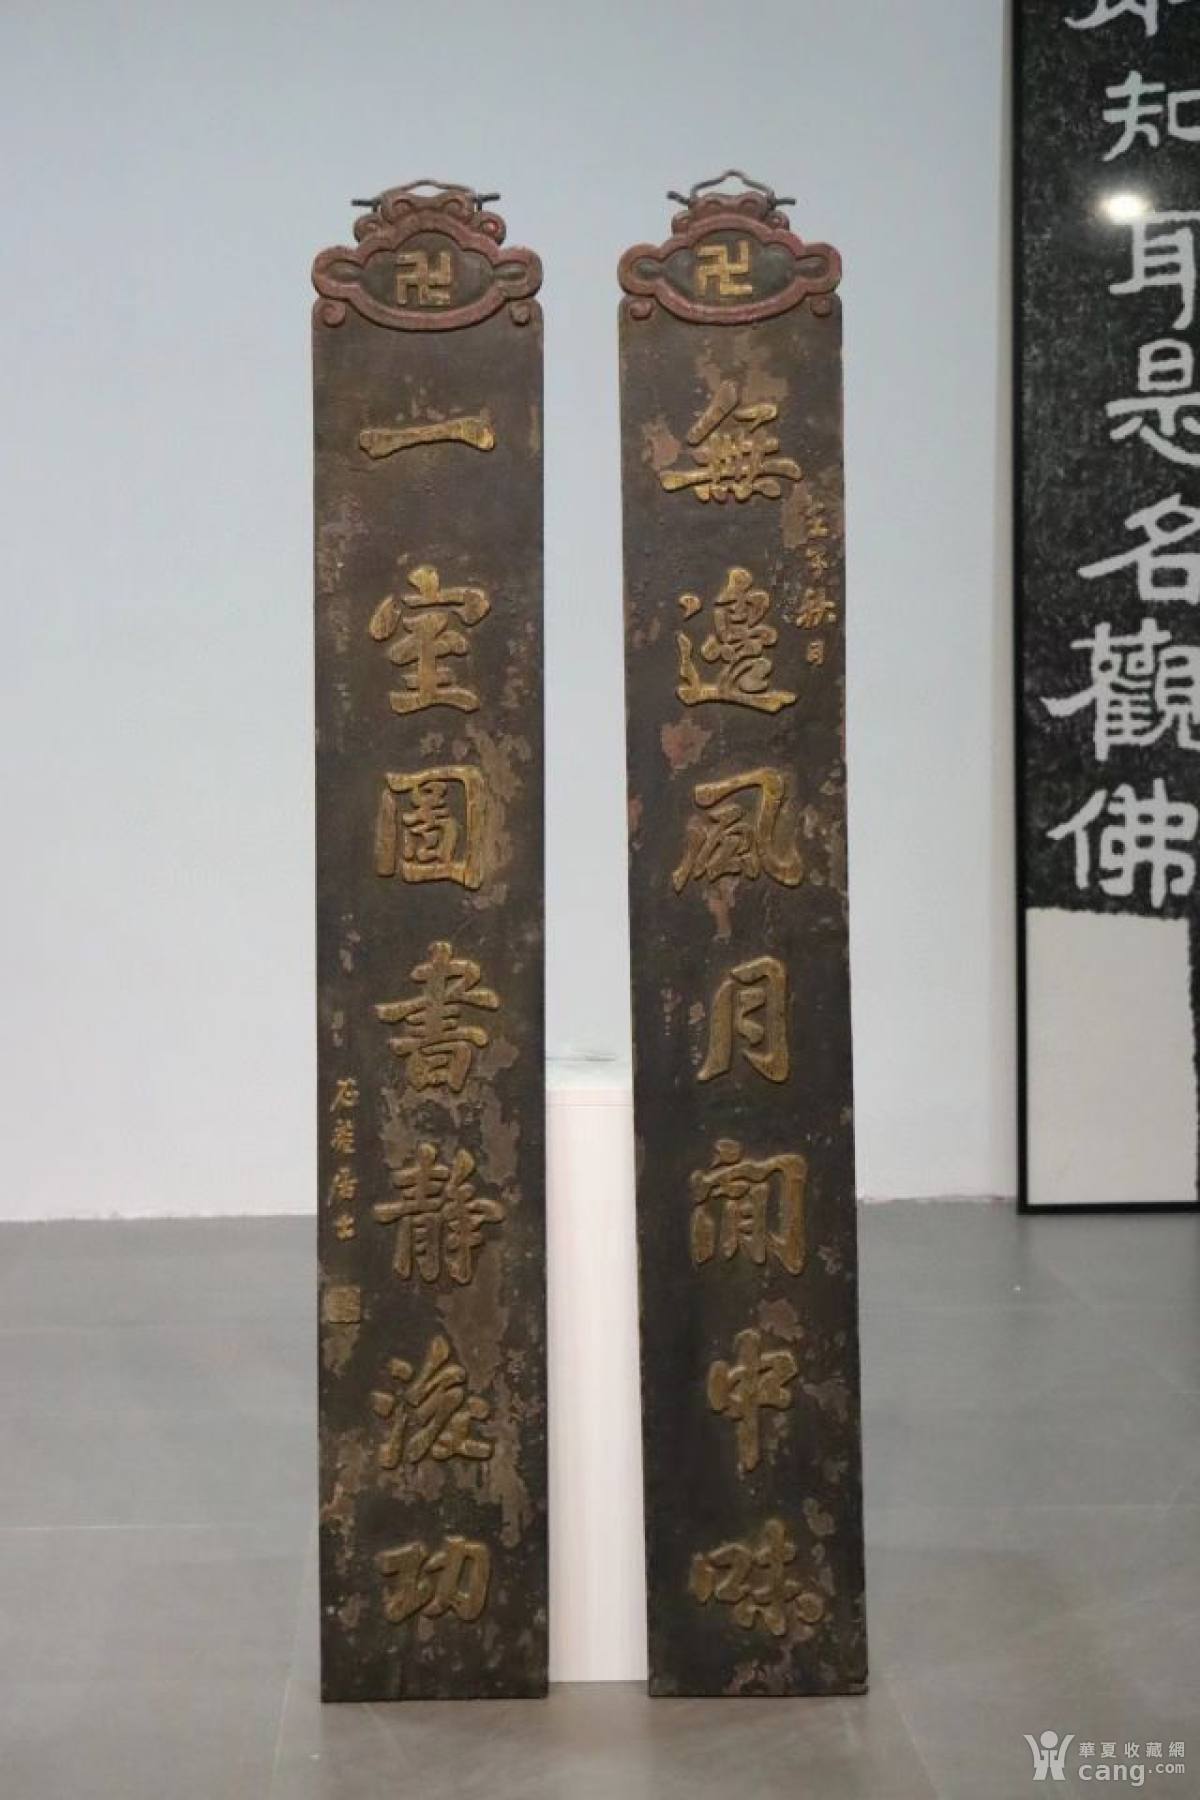 知耳是名觀佛
卍
無邊風月閒中味
壬子秋月
卍
一室圖書靜後功
石菴居士
華夏收藏網
cang.com